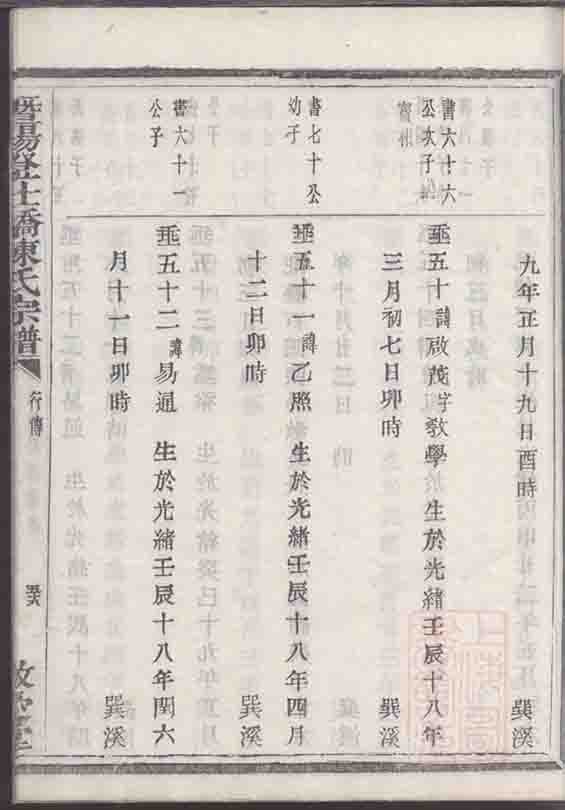 九年正月十九日酉時 巽溪
書六十六
公次子
垂五十 諱啟茂字教學 生於光緒壬辰十八年
三月初七日卯時 巽溪
書七十公
幼子
垂五十一 諱乙照 生於光緒壬辰十八年四月
十二日卯時 巽溪
書六十一
公子
垂五十二 諱易通 生於光緒壬辰十八年閏六
月十一日卯時 巽溪
暨陽登仕橋陳氏宗譜
行傳